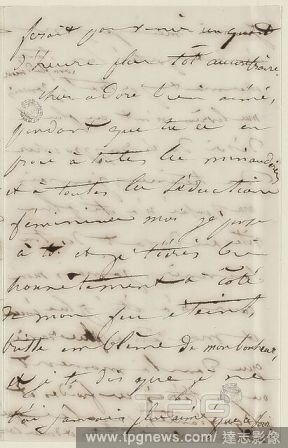 ferait pas venir un quart
d'heure plus tôt au contraire
cher adoré bien aimé,
pendant que tu es en
proie à toutes les minauderies
et à toutes les séductions
féminines moi je pense
à toi et je
honnêtement à côté
de mon feu éteint,
triste emblême de mon bonheur,
et je te dis que je ne
t'ai jamais plus aimé que
TPG 達志影像
www.tpgnews.com